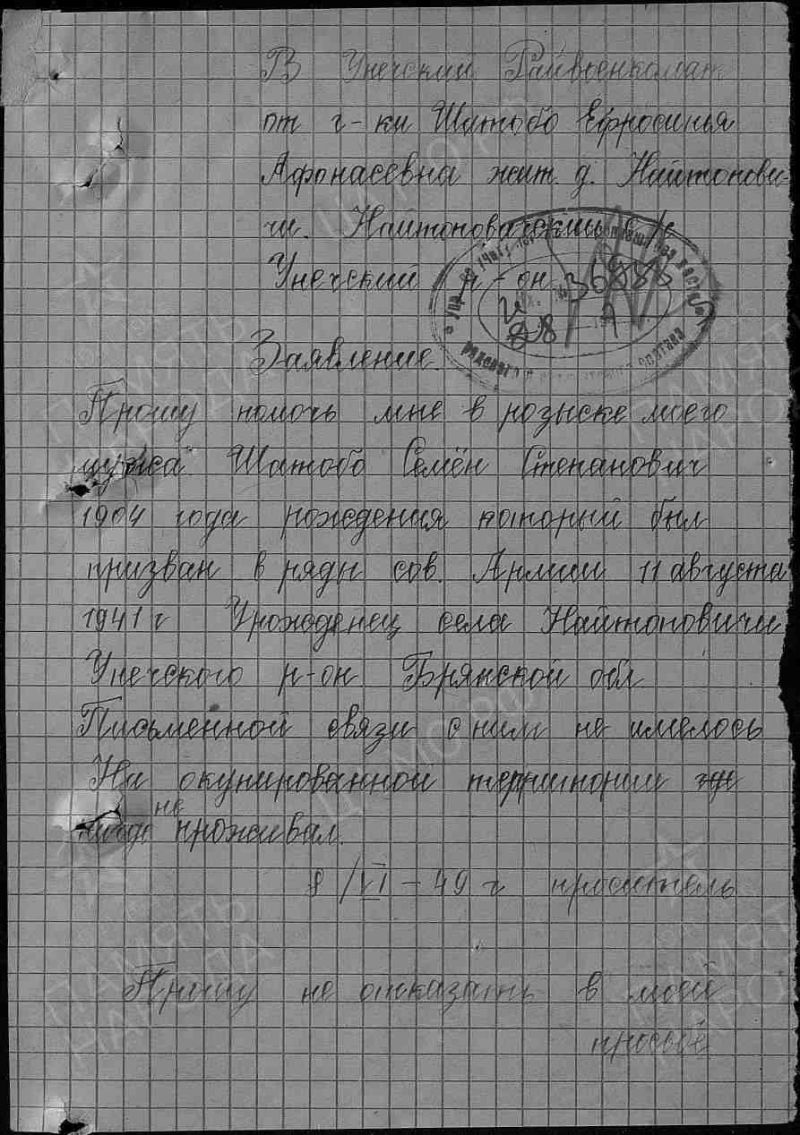 В Унечский Райвоенкомат
от г-ки Шатобо Ефросинья
Афонасевна жит. д. Найтопови-
чи. Найтоповичский с/с
Унечский р-он
36885
Заявление.
Прошу помочь мне в розыске моего
мужа Шатобо Семён Степанович
1904 года рождения который был
призван в ряды сов. Армии 11 августа
1941 г Урожденец села Найтоповичи
Унечского р-он Брянской обл
Письменной связи с ним не имелось
На окупированной територии
не проживал.
8/VI – 49 г проситель
Прошу не отказать в моей
просьбе